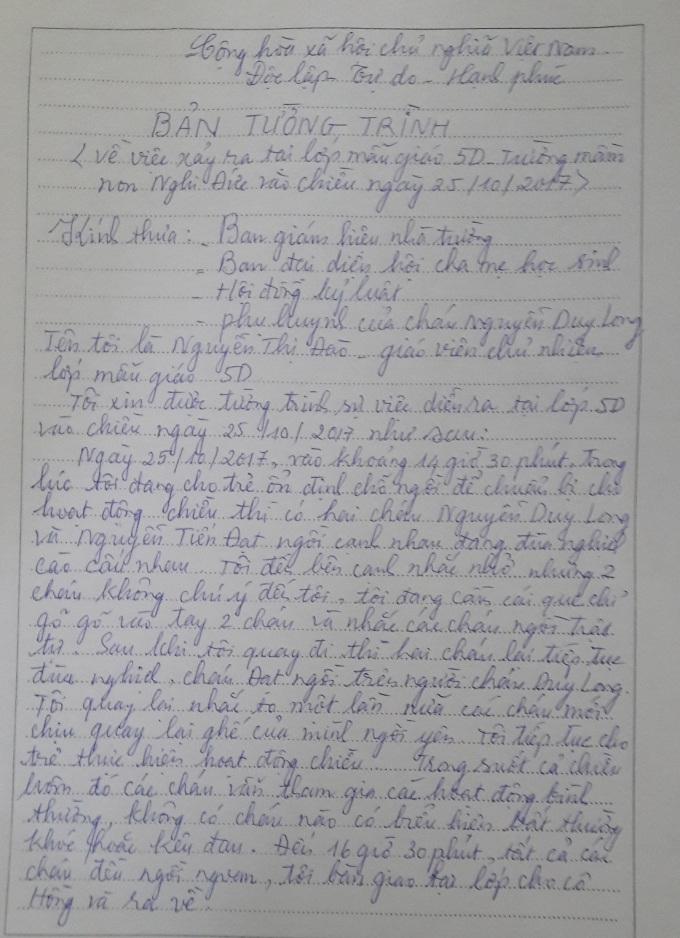 Cộng hòa xã hội chủ nghĩa Việt Nam
Độc lập - Tự do - Hạnh phúc
BẢN TƯỜNG TRÌNH
< Về việc xảy ra tại lớp mẫu giáo 5D - Trường mầm
non Nghi Đức vào chiều ngày 25/10/2017>
Kính thưa: - Ban giám hiệu nhà trường
- Ban đại diện hội cha mẹ học sinh
- Hội đồng kỷ luật
- phụ huynh của cháu Nguyễn Duy Long
Tên tôi là Nguyễn Thị Đào - giáo viên chủ nhiệm
lớp mẫu giáo 5D
Tôi xin được tường trình sự việc diễn ra tại lớp 5D
vào chiều ngày 25/10/2017 như sau:
Ngày 25/10/2017, vào khoảng 14 giờ 30 phút, Trong
lúc tôi đang cho trẻ ổn định chỗ ngồi để chuẩn bị cho
hoạt động chiều thì có hai cháu Nguyễn Duy Long
và Nguyễn Tiến Đạt ngồi cạnh nhau đang đùa nghịch
cào cấu nhau. Tôi đến bên cạnh nhắc nhở nhưng 2
cháu không chú ý đến tôi, tôi đang cầm cái que chỉ
gõ gõ vào tay 2 cháu và nhắc các cháu ngồi trật
tự. Sau khi tôi quay đi thì hai cháu lại tiếp tục
đùa nghịch, cháu Đạt ngồi trên người cháu Duy Long.
Tôi quay lại nhắc to một lần nữa các cháu mới
chịu quay lại ghế của mình ngồi yên. Tôi tiếp tục cho
trẻ thực hiện hoạt động chiều. Trong suốt cả chiều
hôm đó các cháu vẫn tham gia các hoạt động bình
thường, không có cháu nào có biểu hiện bất thường
khóc hoặc kêu đau. Đến 16 giờ 30 phút, tất cả các
cháu đều ngồi ngoan, tôi bàn giao tại lớp cho cô
Hồng và ra về.